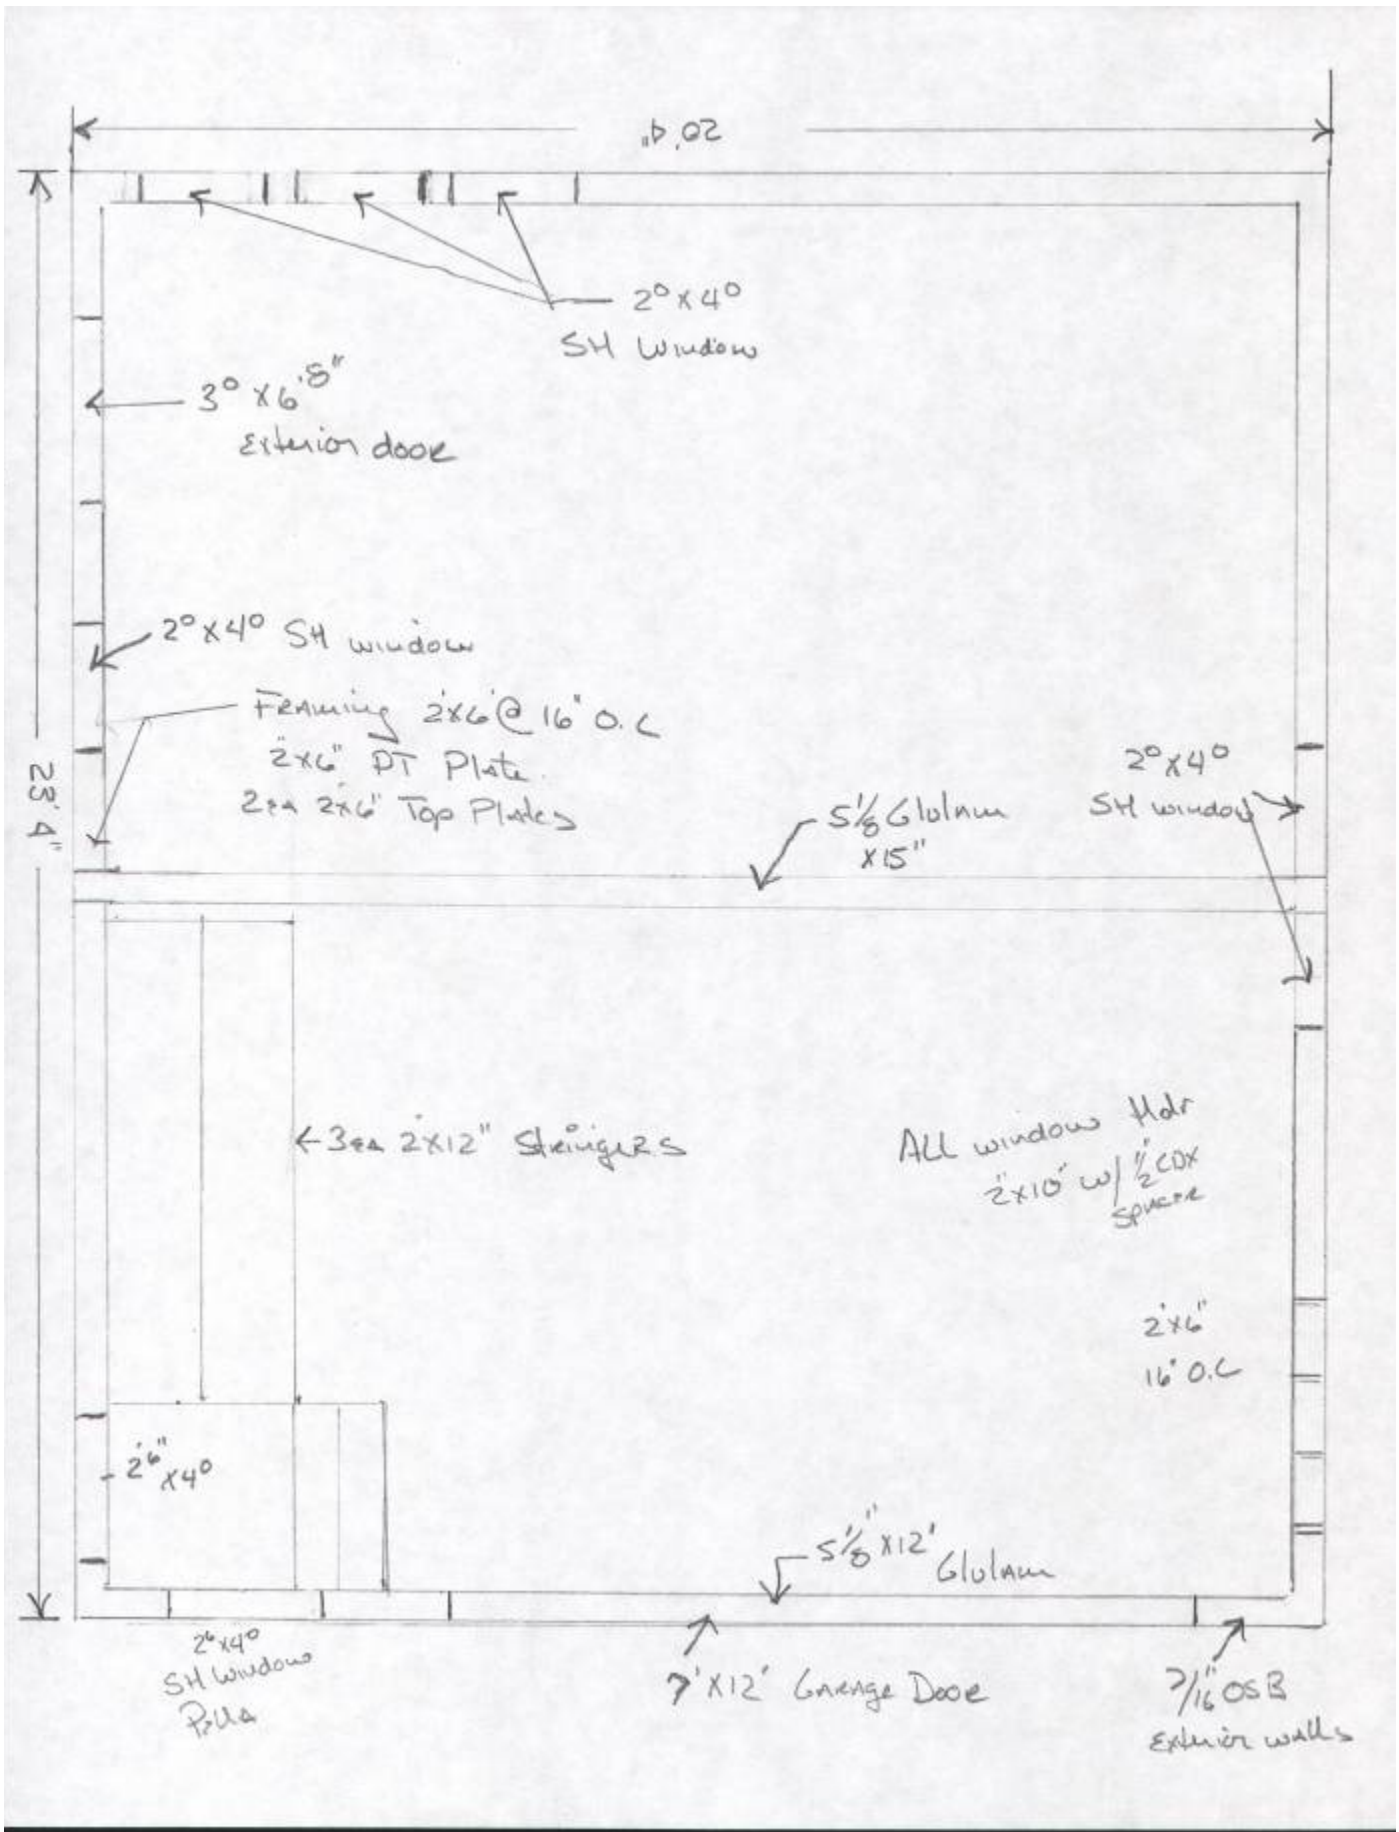 20'4"
2⁰ x 4⁰
SH Window
3⁰ x 6'8"
Exterior door
2⁰ x 4⁰ SH window
Framing 2x6 @ 16" O.C
2x6" PT Plate
2ea 2x6" Top Plates
23'4"
2⁰ x 4⁰
SH window
5 1/8 Glulam
x15"
3ea 2x12" Stringers
ALL window Hdr
2"x10" w/ 1/2" CDX
spacer
2x6"
16" O.C
2'6" x4⁰
5 1/8" x12' Glulam
2⁶ x4⁰
SH Window
Pella
7'x12' Garage Door
7/16" OSB
Exterior walls